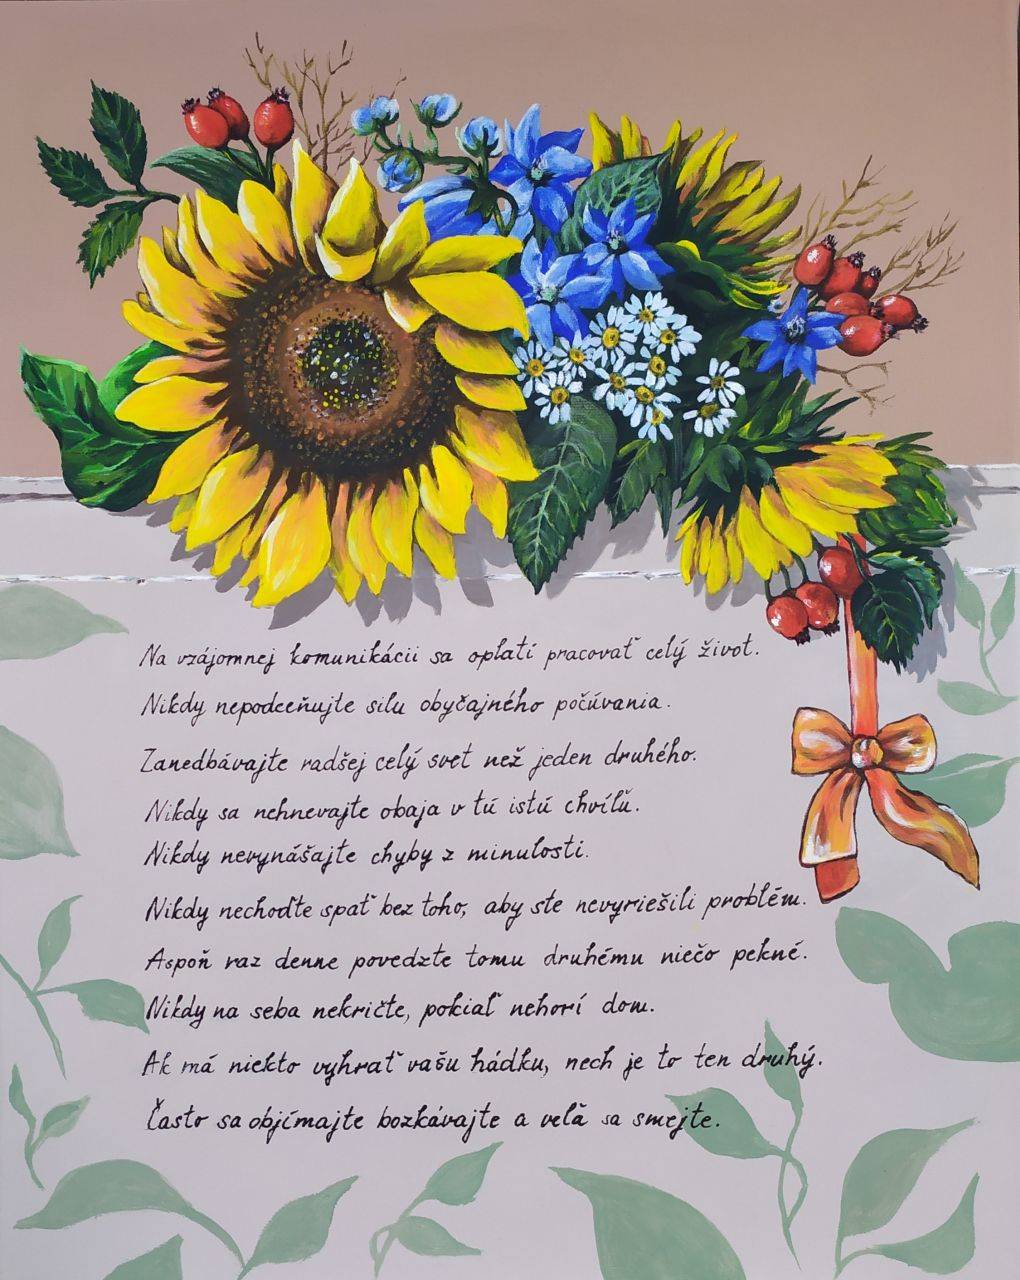 Na vzájomnej komunikácii sa oplatí pracovať celý život.
Nikdy nepodceňujte silu obyčajného počúvania.
Zanedbávajte radšej celý svet než jeden druhého.
Nikdy sa nehnevajte obaja v tú istú chvíľu.
Nikdy nevynášajte chyby z minulosti.
Nikdy nechoďte spať bez toho, aby ste nevyriešili problém.
Aspoň raz denne povedzte tomu druhému niečo pekné.
Nikdy na seba nekričte, pokiaľ nehorí dom.
Ak má niekto vyhrať vašu hádku, nech je to ten druhý.
Často sa objímajte bozkávajte a veľa sa smejte.